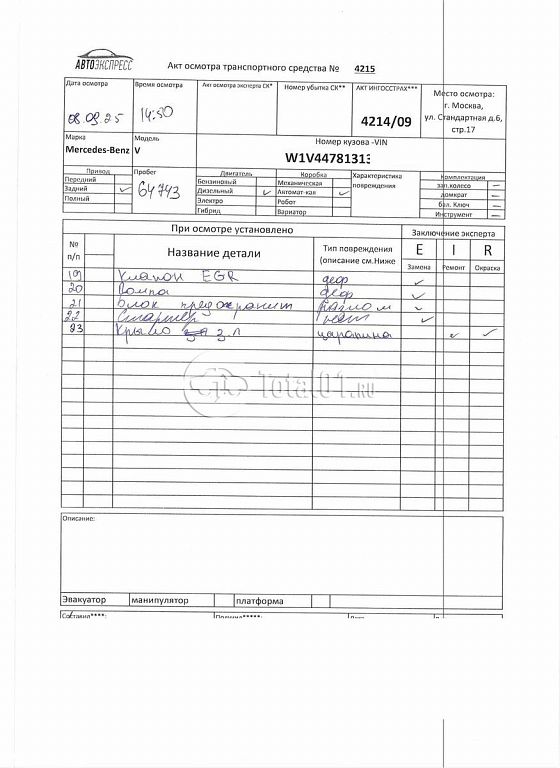 АВТОЭКСПРЕСС
Акт осмотра транспортного средства № 4215
Дата осмотра Время осмотра Акт осмотра эксперта СК* Номер убытка СК** АКТ ИНГОССТРАХ*** Место осмотра:
08.09.25 14:50 4214/09 г. Москва,
ул. Стандартная д.6,
стр.17
Марка Модель Номер кузова -VIN
Mercedes-Benz V W1V44781313
Привод Пробег Двигатель Коробка Характеристика повреждения Комплектация
Передний 64743 Бензиновый Механическая зап.колесо —
Задний ✓ Дизельный ✓ Автомат-кая ✓ домкрат —
Полный Электро Робот бал. Ключ —
Гибрид Вариатор Инструмент —
При осмотре установлено Заключение эксперта
№ п/п Название детали Тип повреждения (описание см.Ниже E I R
Замена Ремонт Окраска
19 Клапан EGR деф ✓
20 Помпа деф ✓
21 Блок предохранит разлом ✓
22 Стартер ✓
23 Крыло з л царапина ✓ ✓
Total01.RU
Описание:
Эвакуатор манипулятор платформа
Составил****: Получил*****: